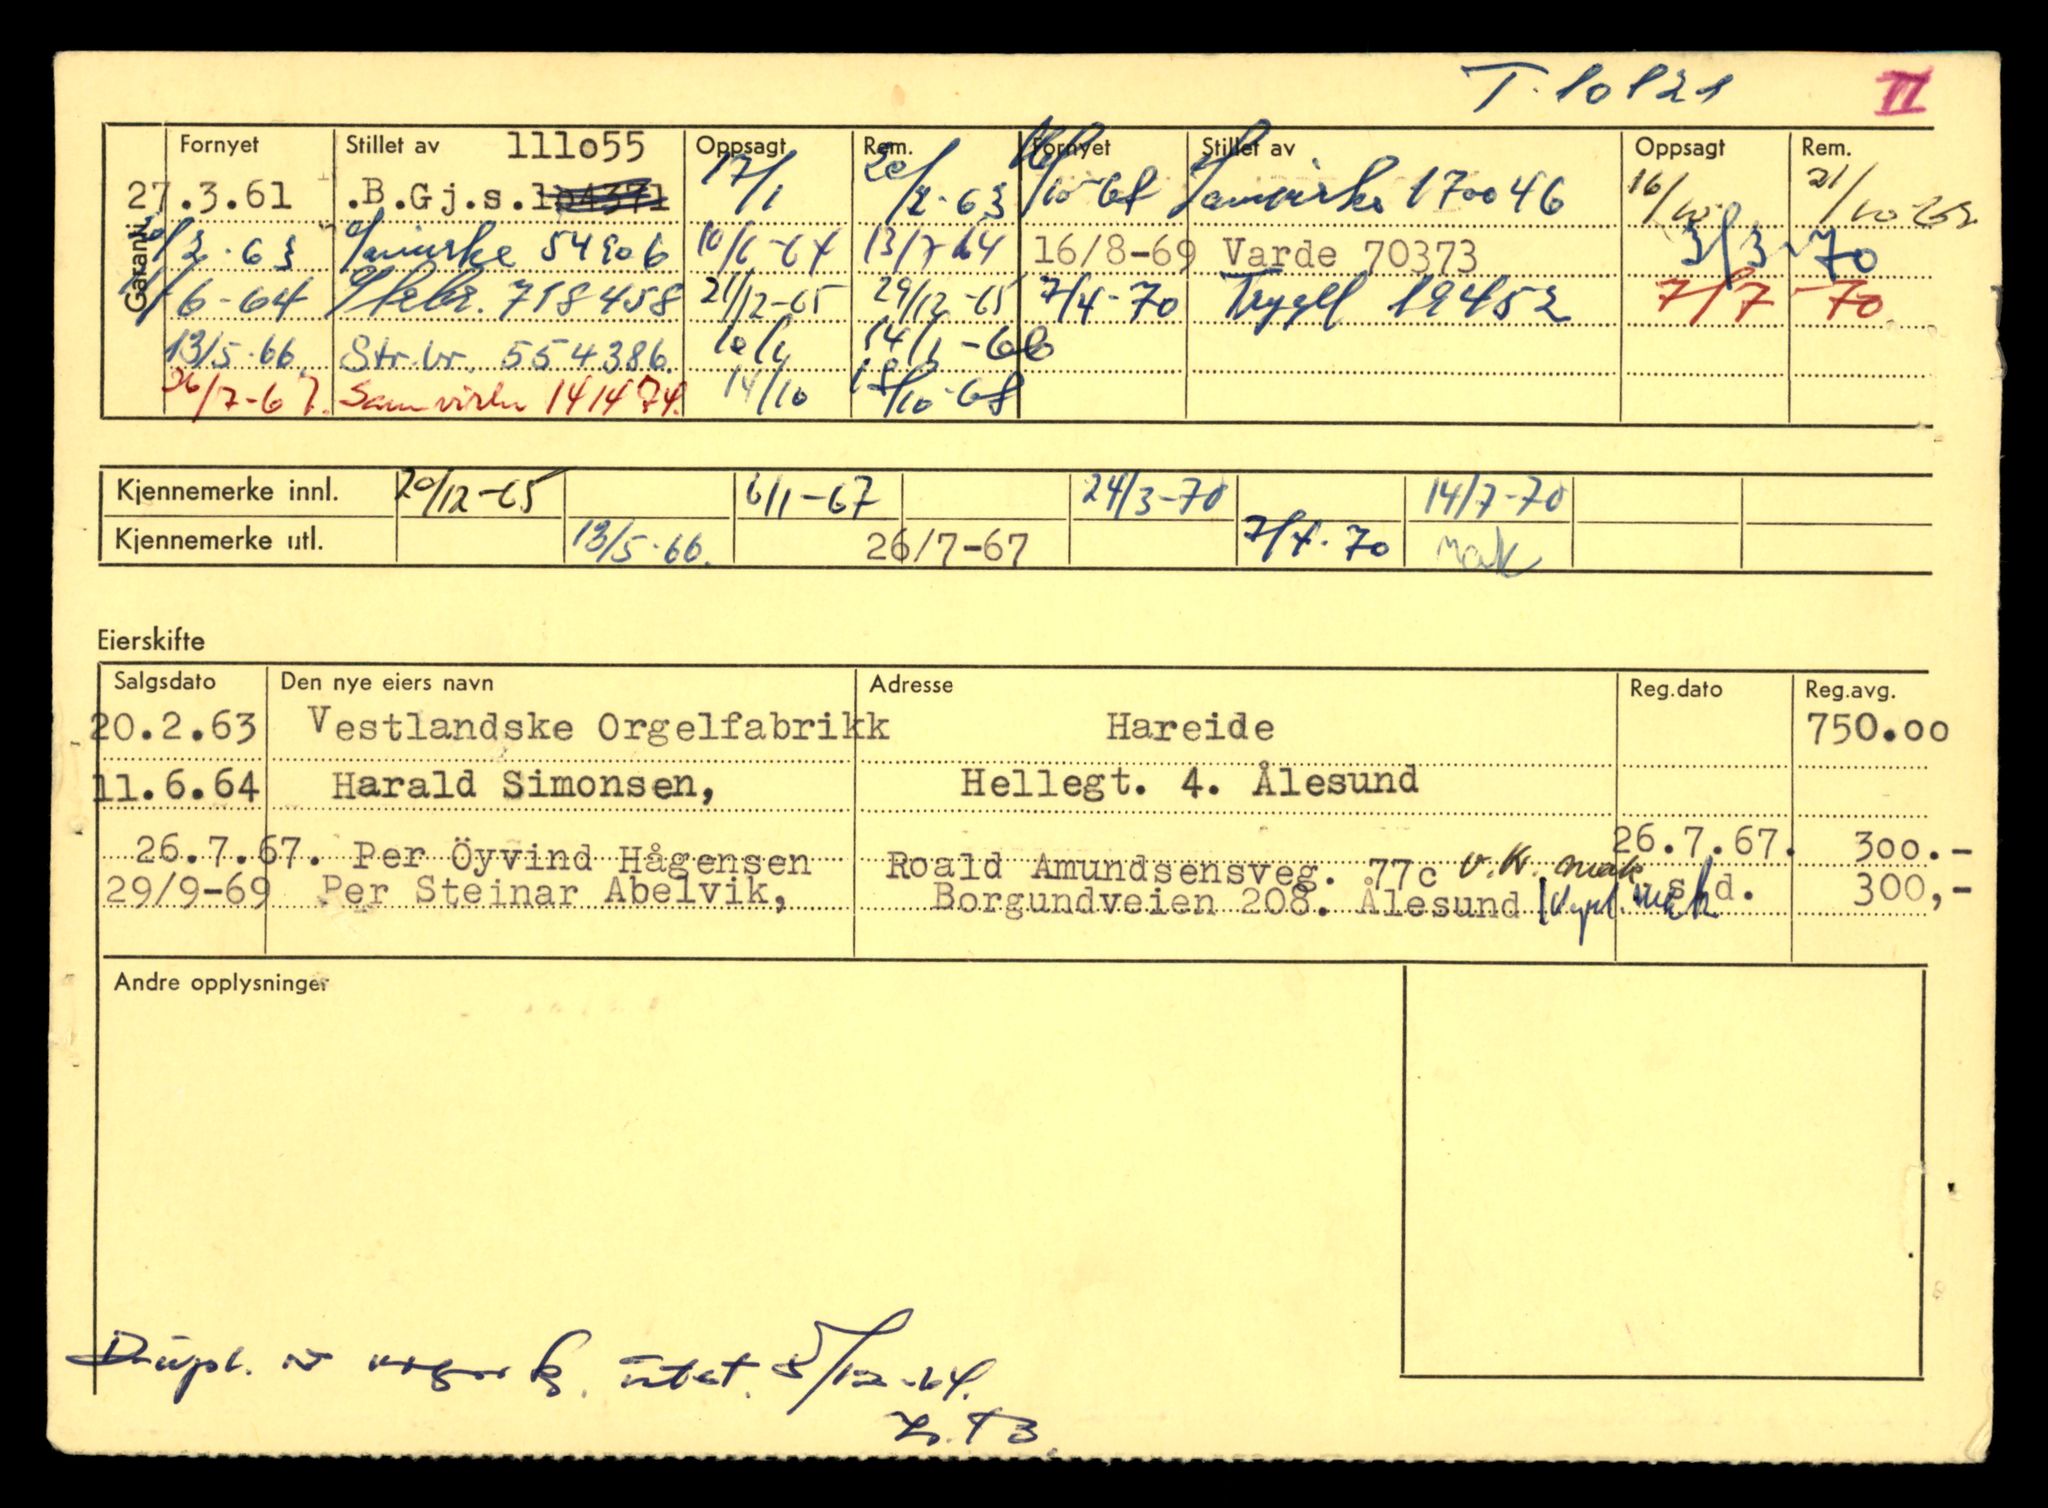 T. 10121 II
Garanti
Fornyet Stillet av 111o55 Oppsagt Rem. Fornyet Stillet av Oppsagt Rem.
27.3.61 .B.Gj.s. 17/1 20/2-63 /10-68 Samvirke 170046 16/10- 21/10-69
/2-63 Samvirke 54906 10/6-64 13/7-64 16/8-69 Varde 70373 3/3-70
/6-64 Stebr. 758458 21/12-65 29/12-65 7/4-70 Trygd 19452 7/7-70
13/5-66 Str.br. 554386. 10/1 14/1-66
26/7-67. Samvirke 141474. 14/10 18/10-68
Kjennemerke innl. 20/12-65 6/1-67 24/3-70 14/7-70
Kjennemerke utl. 13/5-66. 26/7-67 7/4-70 mak
Eierskifte
Salgsdato Den nye eiers navn Adresse Reg.dato Reg.avg.
20.2.63 Vestlandske Orgelfabrikk Hareide 750.oo
11.6.64 Harald Simonsen, Hellegt. 4. Ålesund
26.7.67. Per Öyvind Hågensen Roald Amundsensveg. 77c v.k. mak 26.7.67. 300.-
29/9-69 Per Steinar Abelvik, Borgundveien 208. Ålesund s.d. 300,-
Andre opplysninger
Dupl. av vognk. utst. 5/12-64.